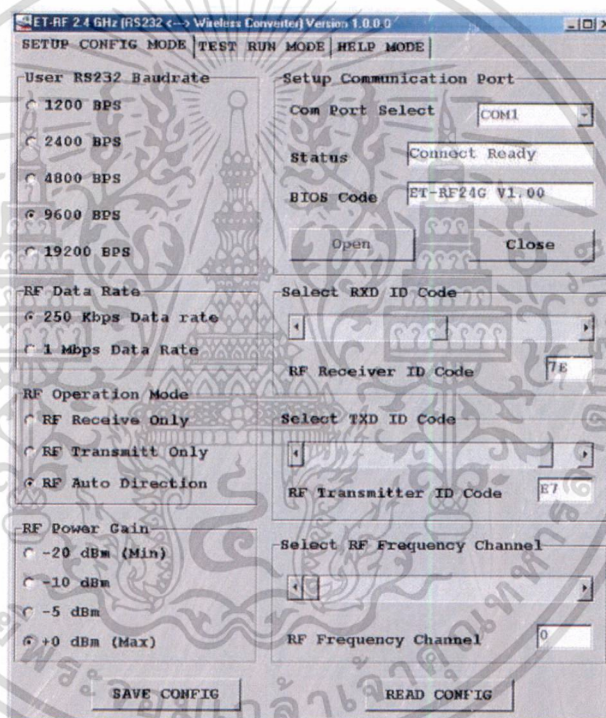 ET-RF 2.4 GHz (RS232 <---> Wireless Converter) Version 1.0.0.0
SETUP CONFIG MODE TEST RUN MODE HELP MODE
User RS232 Baudrate
1200 BPS
2400 BPS
4800 BPS
9600 BPS
19200 BPS
RF Data Rate
250 Kbps Data rate
1 Mbps Data Rate
RF Operation Mode
RF Receive Only
RF Transmitt Only
RF Auto Direction
RF Power Gain
-20 dBm (Min)
-10 dBm
-5 dBm
+0 dBm (Max)
SAVE CONFIG
Setup Communication Port
Com Port Select COM1
Status Connect Ready
BIOS Code ET-RF24G V1.00
Open Close
Select RXD ID Code
RF Receiver ID Code 7E
Select TXD ID Code
RF Transmitter ID Code E7
Select RF Frequency Channel
RF Frequency Channel 0
READ CONFIG